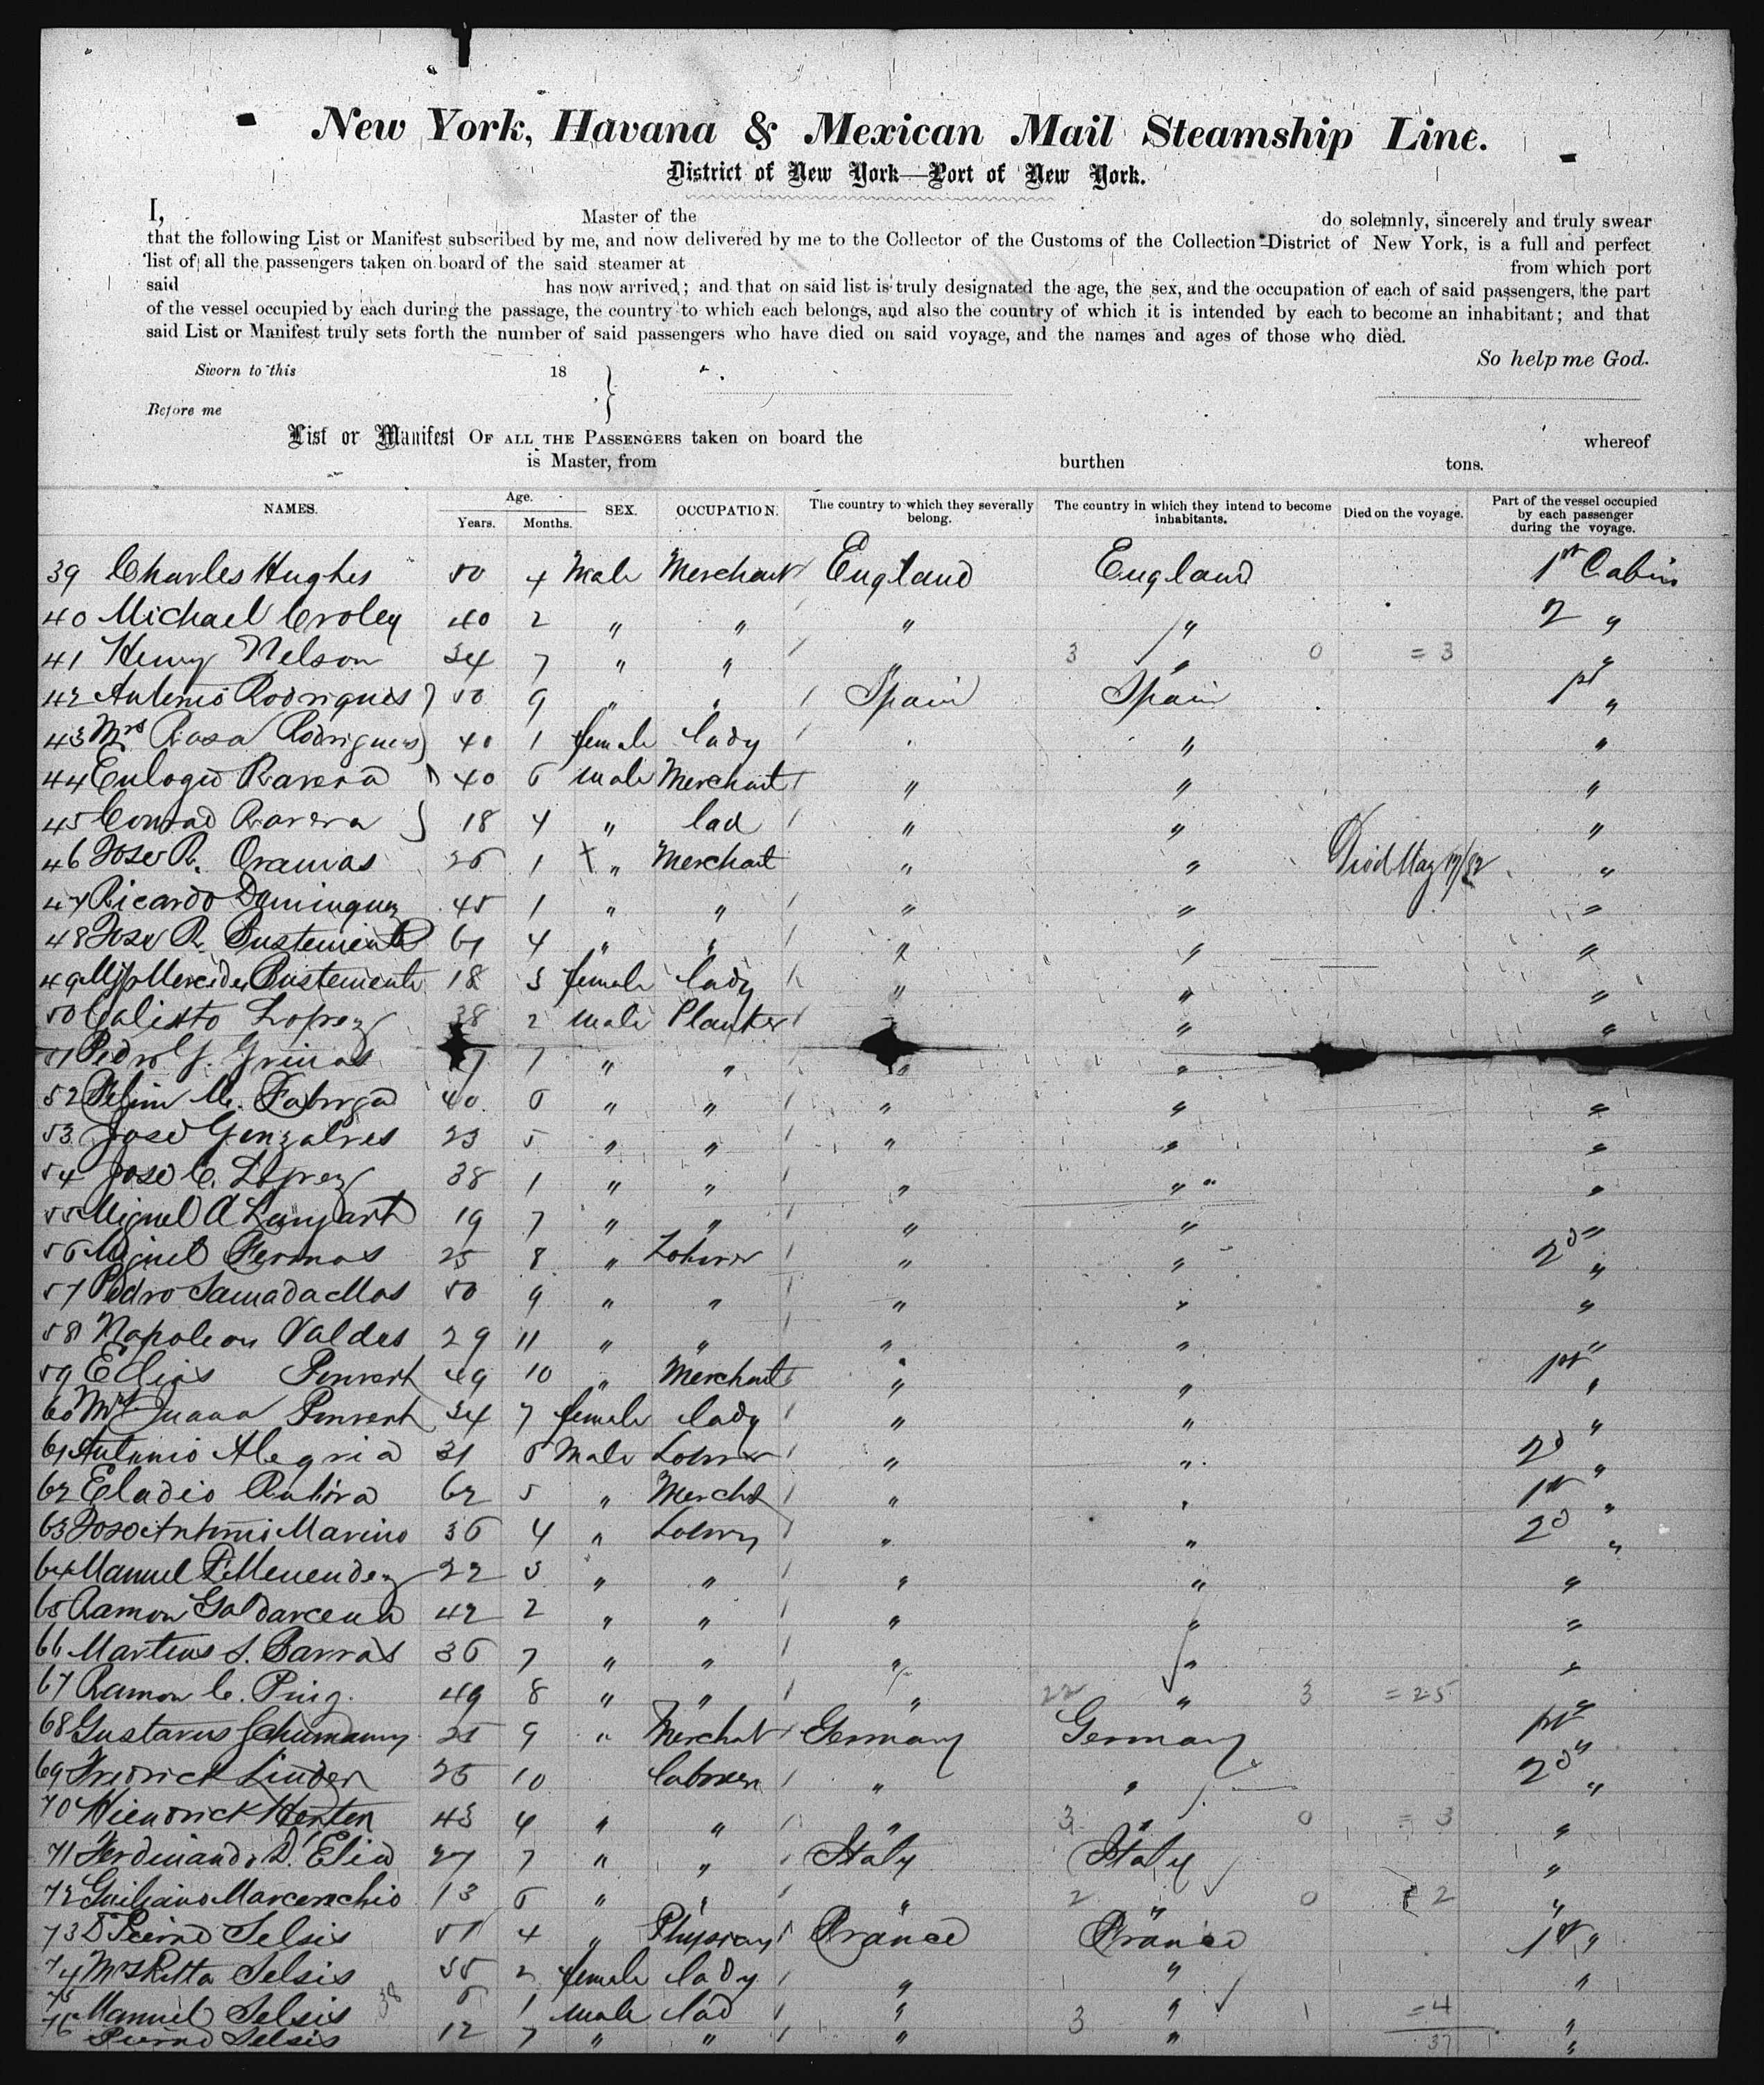 New York, Havana & Mexican Mail Steamship Line.
District of New York—Port of New York.
I, Master of the do solemnly, sincerely and truly swear
that the following List or Manifest subscribed by me, and now delivered by me to the Collector of the Customs of the Collection District of New York, is a full and perfect
list of all the passengers taken on board of the said steamer at from which port
said has now arrived; and that on said list is truly designated the age, the sex, and the occupation of each of said passengers, the part
of the vessel occupied by each during the passage, the country to which each belongs, and also the country of which it is intended by each to become an inhabitant; and that
said List or Manifest truly sets forth the number of said passengers who have died on said voyage, and the names and ages of those who died.
So help me God.
Sworn to this 18
Before me
List or Manifest OF ALL THE PASSENGERS taken on board the whereof
is Master, from burthen tons.
NAMES. Age. Years. Months. SEX. OCCUPATION. The country to which they severally belong. The country in which they intend to become inhabitants. Died on the voyage. Part of the vessel occupied by each passenger during the voyage.
39 Charles Hughes 50 4 Male Merchant England England 1st Cabin
40 Michael Croley 40 2 " " " " 2 "
41 Henry Nelson 34 7 " " " 3 " 0 = 3 "
42 Antonio Rodrigues 50 9 " " Spain Spain 1st "
43 Mrs Rosa Rodrigues 40 1 female lady " " "
44 Eulogio Ravera 40 6 male Merchant " " "
45 Conrad Ravera 18 4 " lad " " "
46 Jose R. 26 1 X " Merchant " " Died May 17/82 "
47 Ricardo Dominguez 45 1 " " " " "
48 Jose R. Bustemente 61 4 " " " " "
49 Miss Mercedes Bustemente 18 3 female lady " " "
50 Calixto Lopez 38 2 male Planter " " "
51 Pedro G. Grinas 7 " " " " "
52 M. Fabrega 40 6 " " " " "
53 Jose Gonzalves 23 5 " " " " "
54 Jose C. Lopez 38 1 " " " " "
55 Miguel A 19 7 " " " " "
56 Miguel 25 8 " " " 2d "
57 Pedro 50 9 " " " " "
58 Napoleon Valdes 29 11 " " " " "
59 Elias Ponvert 49 10 " Merchant " " 1st "
60 Mrs Juana Ponvert 34 7 female lady " " "
61 Antonio Alegria 31 6 Male " " 2d "
62 Eladio 62 5 " Mercht " " 1st "
63 Jose Antonio Marino 36 4 " " " 2d "
64 Manuel P. Menendez 22 3 " " " " "
65 Ramon 42 2 " " " " "
66 S. Barras 36 7 " " " " "
67 Ramon C. Puig. 49 8 " " " 22 " 3 = 25 "
68 Gustavus Schumann 25 9 " Merchat Germany Germany 1st "
69 Fredrick Linder 26 10 " " 2d "
70 Hendrick 43 4 " " " 3 " 0 = 3 "
71 Ferdinando D'Elia 27 7 " " Italy Italy "
72 13 6 " " " 2 " 0 = 2 "
73 Dr Pierre Selsis 51 4 " France France 1st "
74 Mrs Ritta Selsis 38 35 2 female lady " " "
75 Manuel Selsis 6 1 male lad " 3 " 1 = 4 "
76 Pierre Selsis 12 7 " " " " 37 "